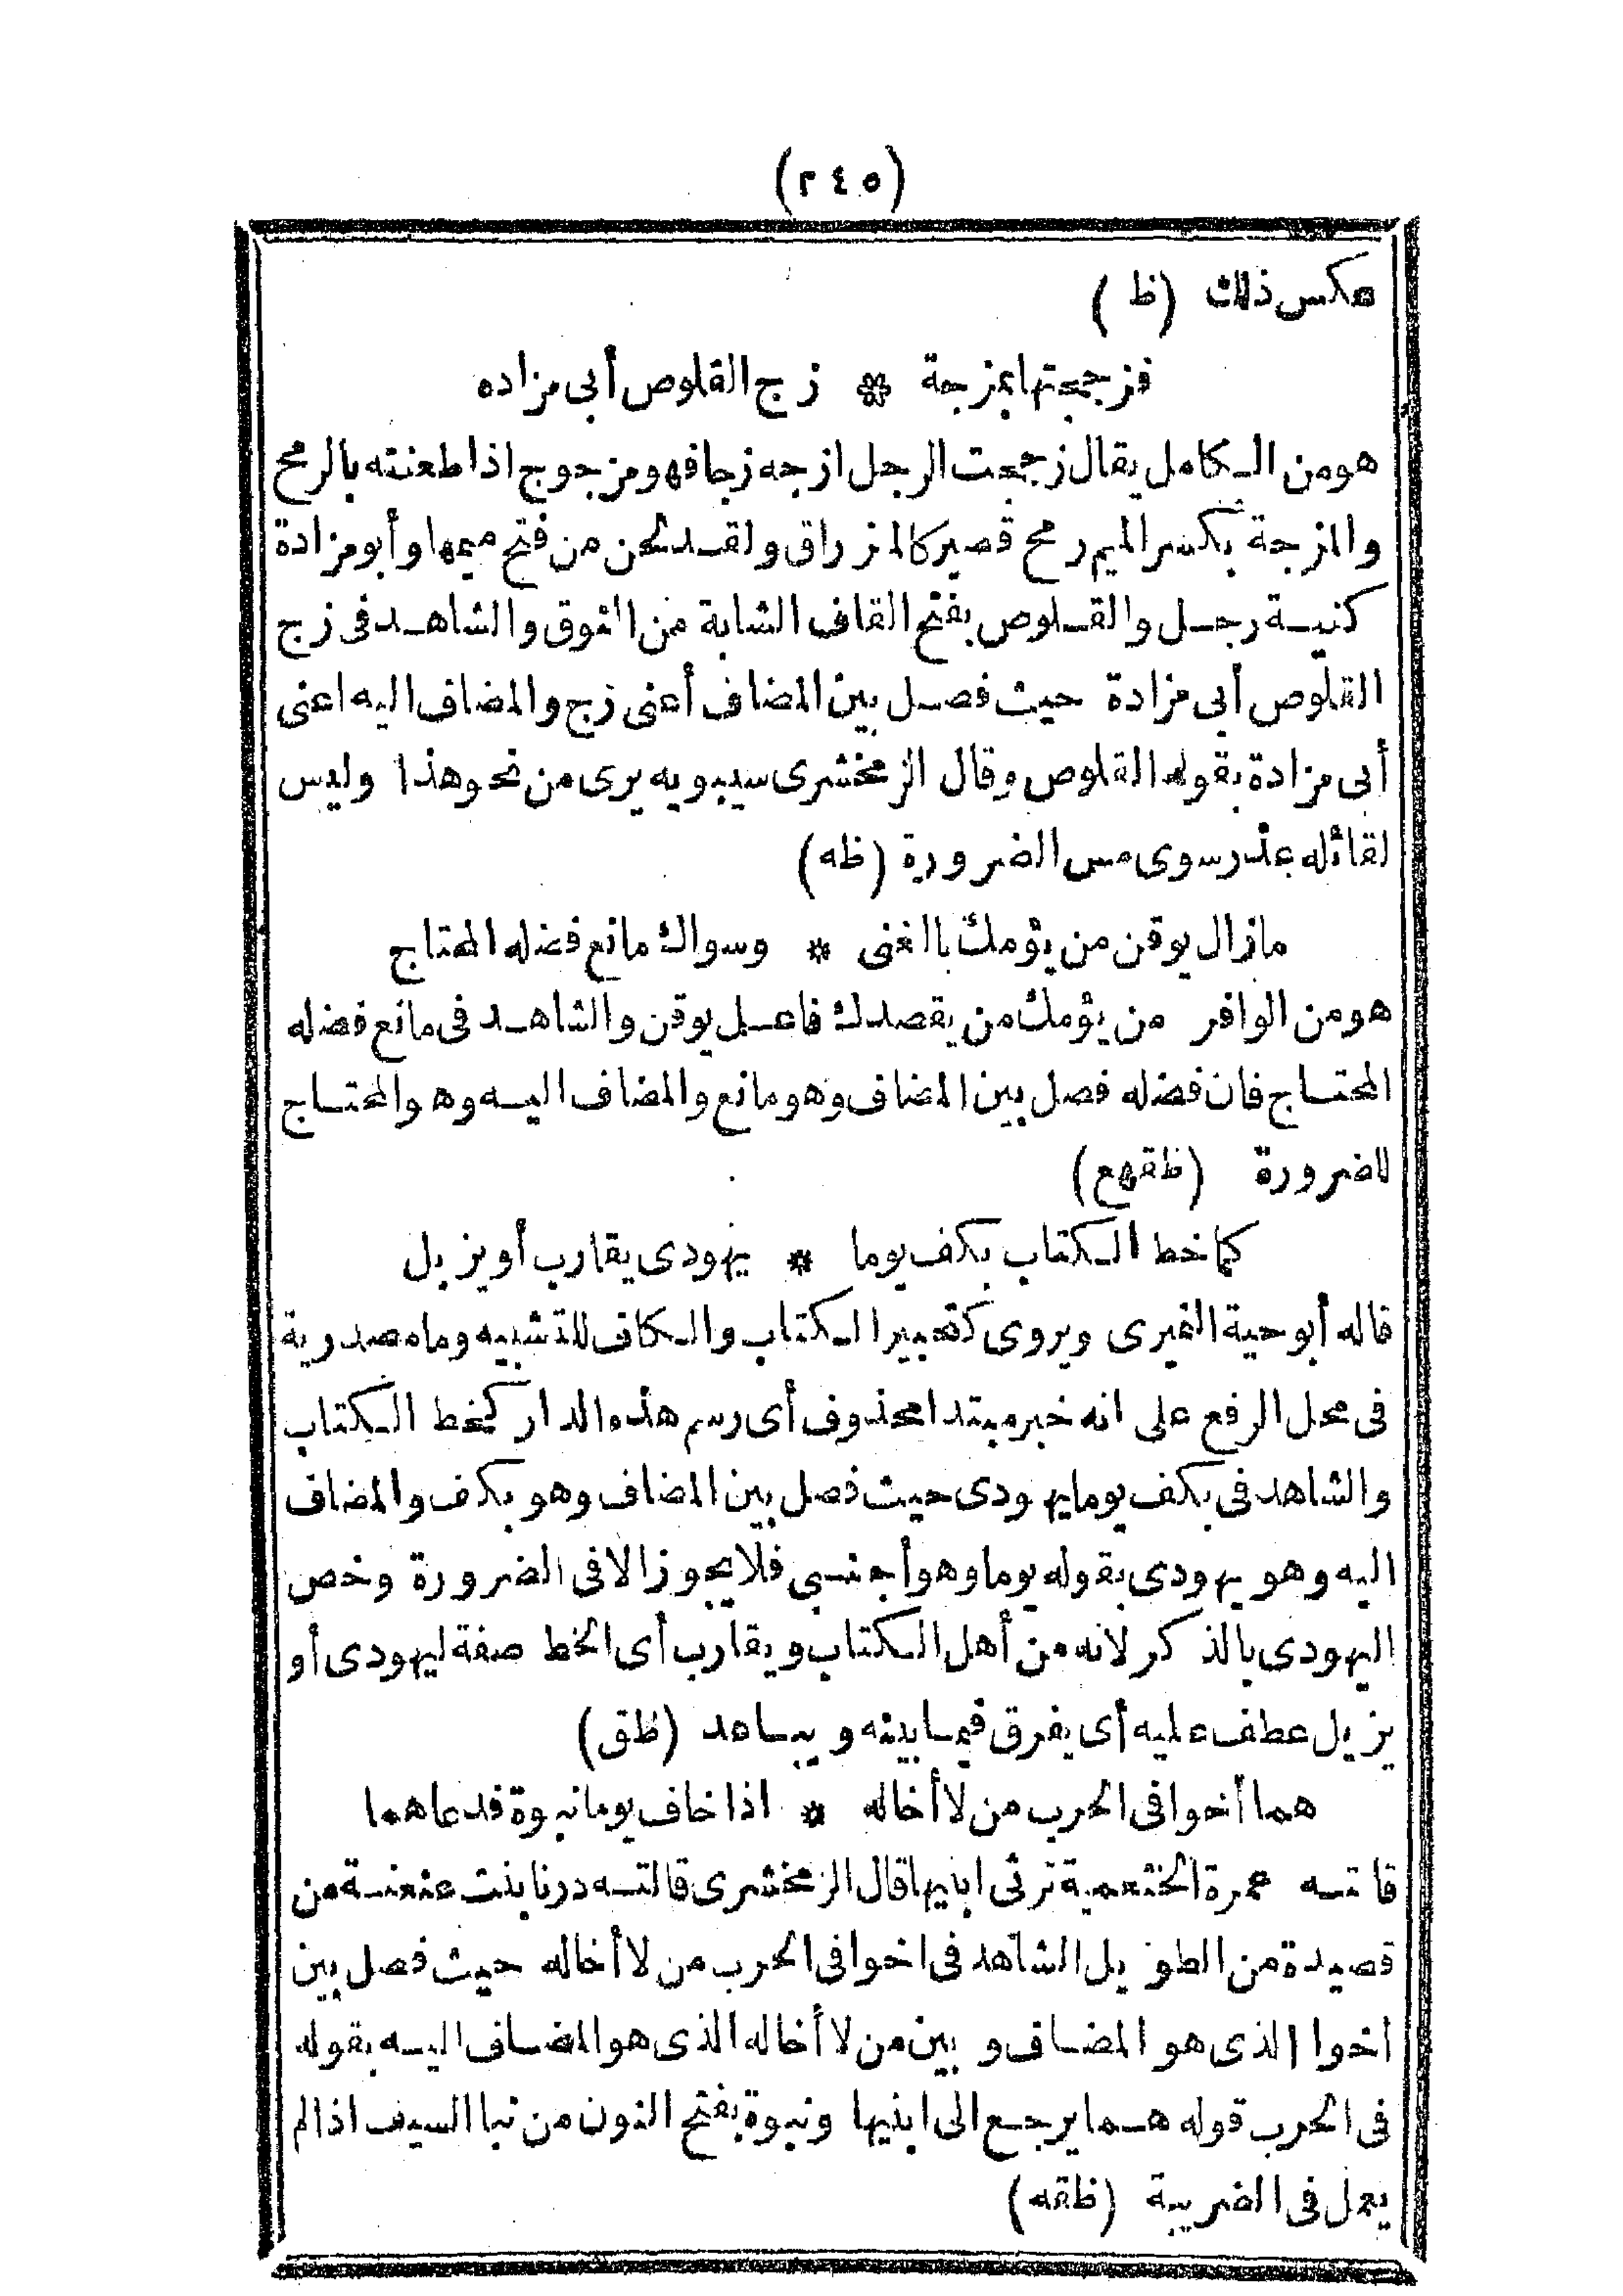 (٢٤٥)
عكس ذلك (ظ)
فزججتها بمزجة * زج القلوص أبى مزاده
هو من الكامل يقال زججت الرجل ازجه زجا فهو مزجوج اذا طعنته بالرمح
والمزجة بكسر الميم رمح قصير كالمزراق ولقد لحن من فتح ميمها وأبو مزادة
كنية رجل والقلوص بفتح القاف الشابة من النوق والشاهد فى زج
القلوص أبى مزادة حيث فصل بين المضاف أعنى زج والمضاف اليه اعنى
أبى مزادة بقوله القلوص وقال الزمخشرى سيبويه يرى من نحو هذا وليس
لقائله عذر سوى مس الضرورة (ظه)
مازال يوقن من يؤمك بالغنى * وسواك مانع فضله المحتاج
هو من الوافر من يؤمك من يقصدك فاعل يوقن والشاهد فى مانع فضله
المحتاج فان فضله فصل بين المضاف وهو مانع والمضاف اليه وهو المحتاج
للضرورة (ظقهع)
كما خط الكتاب بكف يوما * يهودى يقارب أو يزيل
قاله أبو حية النميرى ويروى كتحبير الكتاب والكاف للتشبيه وما مصدرية
فى محل الرفع على انه خبر مبتدا محذوف أى رسم هذه الدار كخط الكتاب
والشاهد فى بكف يوما يهودى حيث فصل بين المضاف وهو بكف والمضاف
اليه وهو يهودى بقوله يوما وهو أجنبى فلا يجوز الا فى الضرورة وخص
اليهودى بالذكر لانه من أهل الكتاب ويقارب أى الخط صفة ليهودى أو
يزيل عطف عليه أى يفرق فيما بينه ويباعد (ظق)
هما أخوا فى الحرب من لا أخاله * اذا خاف يوما نبوة فدعاهما
قالته عمرة الخثعمية ترثى ابنيها قال الزمخشرى قالته درنا بنت عنعنة من
قصيدة من الطويل الشاهد فى اخوا فى الحرب من لا أخاله حيث فصل بين
اخوا الذى هو المضاف و بين من لا أخاله الذى هو المضاف اليه بقوله
فى الحرب قوله هما يرجع الى ابنيها ونبوة بفتح النون من نبا السيف اذا لم
يعمل فى الضريبة (ظقه)